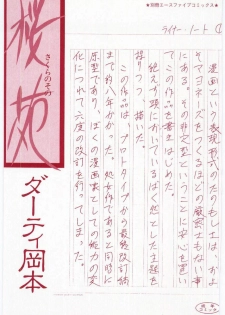 ★別冊エースファイブコミックス★
桜苑
さくらのその
ダーティ岡本
ライナーノート ①
漫画という表現形式のたのもしさは、およ
そマヨネーズをつくるほどの厳密さもない事
にある。その非文学ということに安心を置い
てこの作品を書きはじめた。
絶えず頭にわきているばく然とした主題を
操りつつ描いた。
この作品は、プロトタイプから最終改訂稿
まで約八年かかった。処女作であると同時に
原型であり、ぼくの漫画家としての能力の変
化につれて六度の改訂を行ってしまった。
成年
コミック